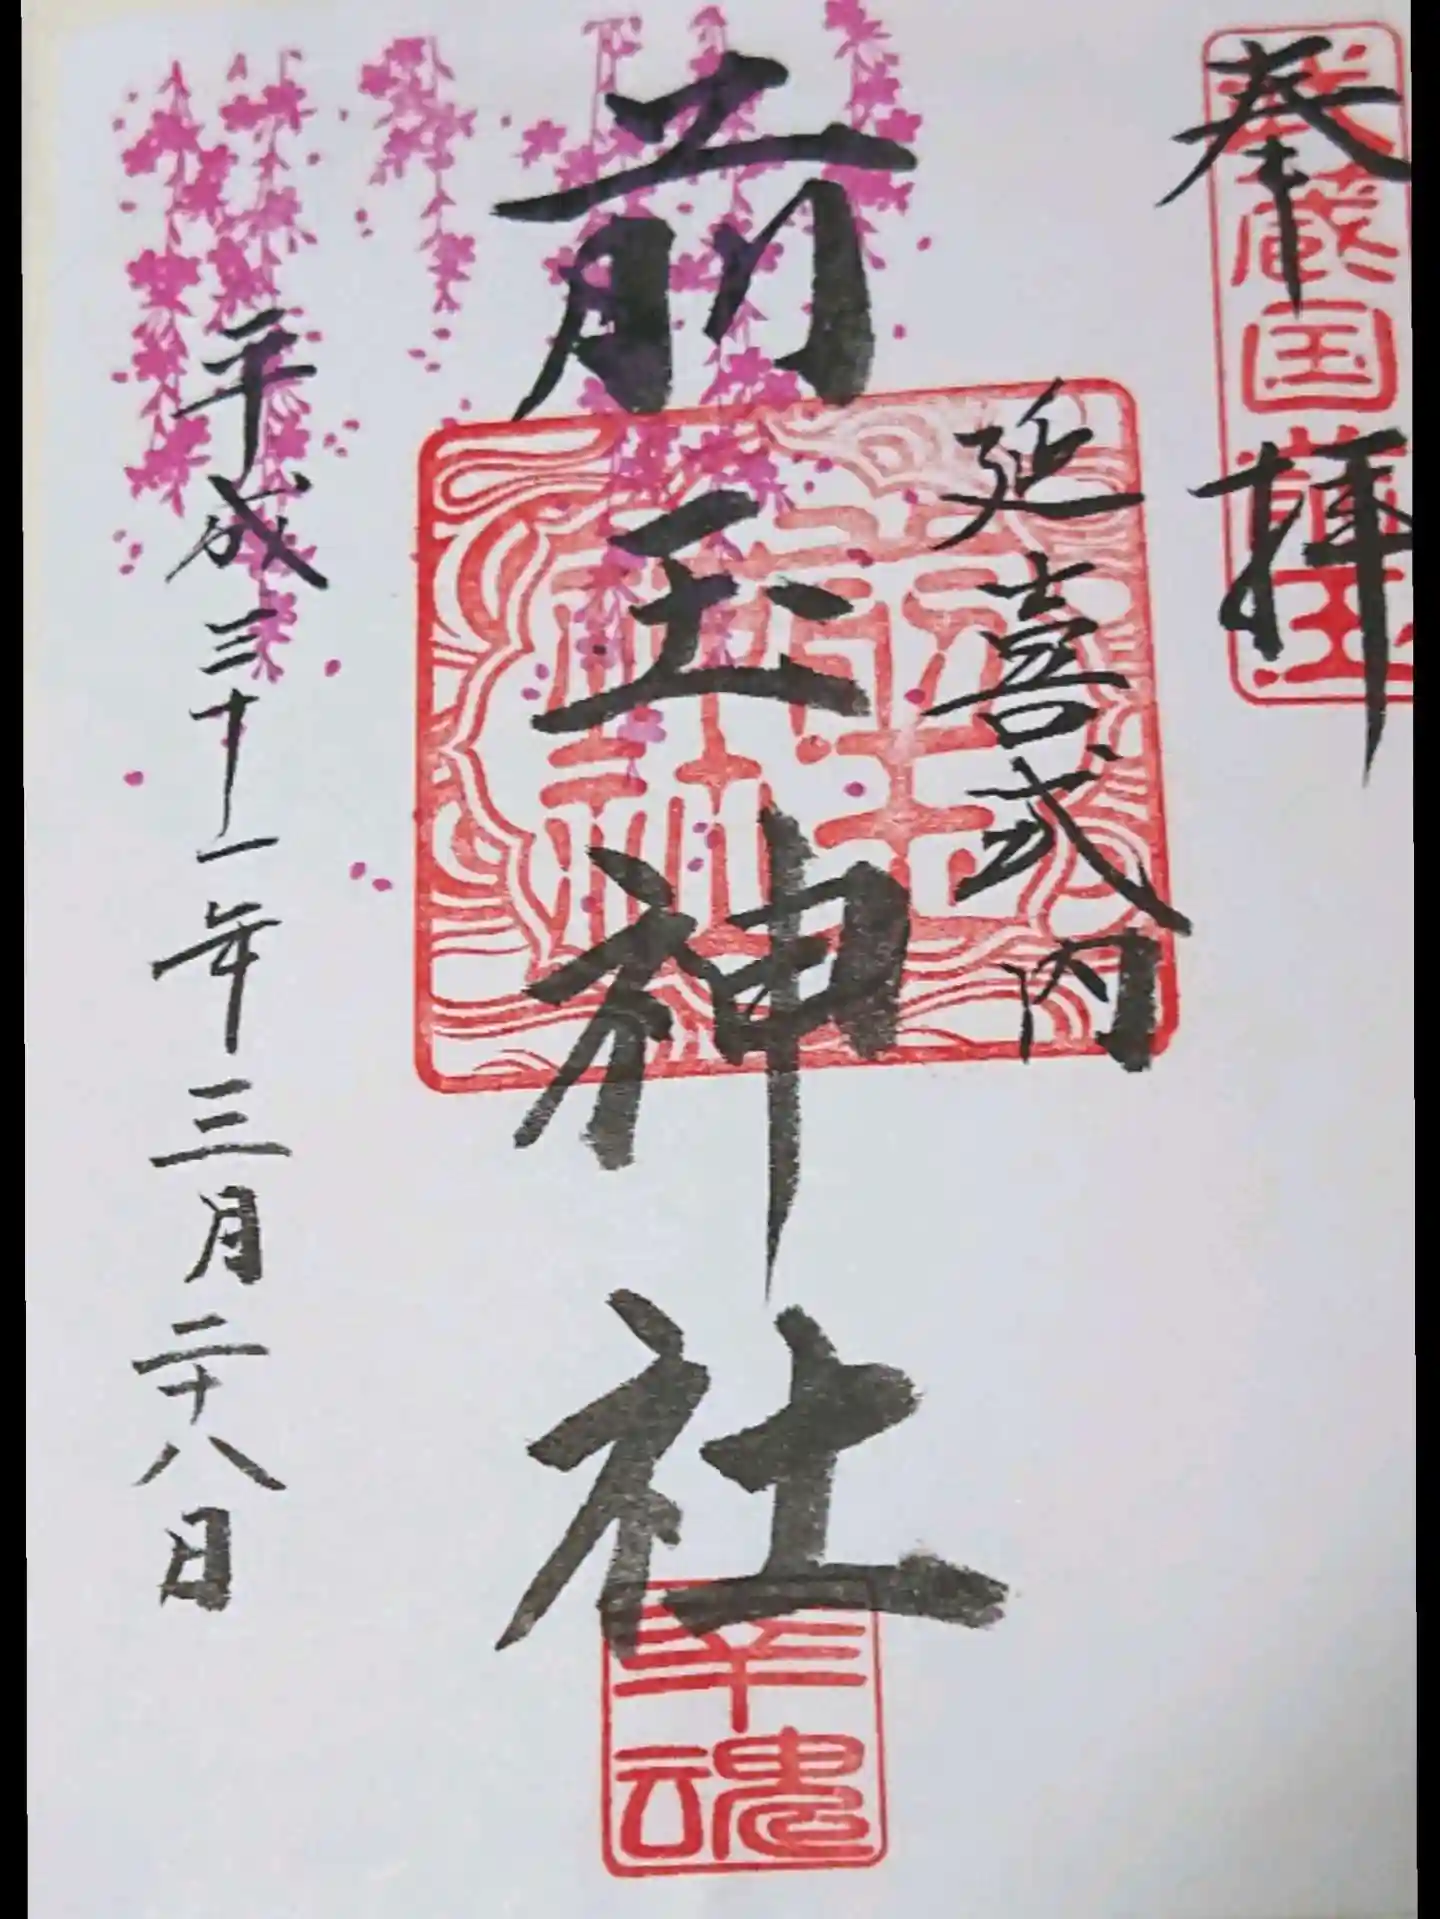 奉拝
武蔵国前玉
延喜式内
前玉神社
前玉神社
幸魂
平成三十一年三月二十八日